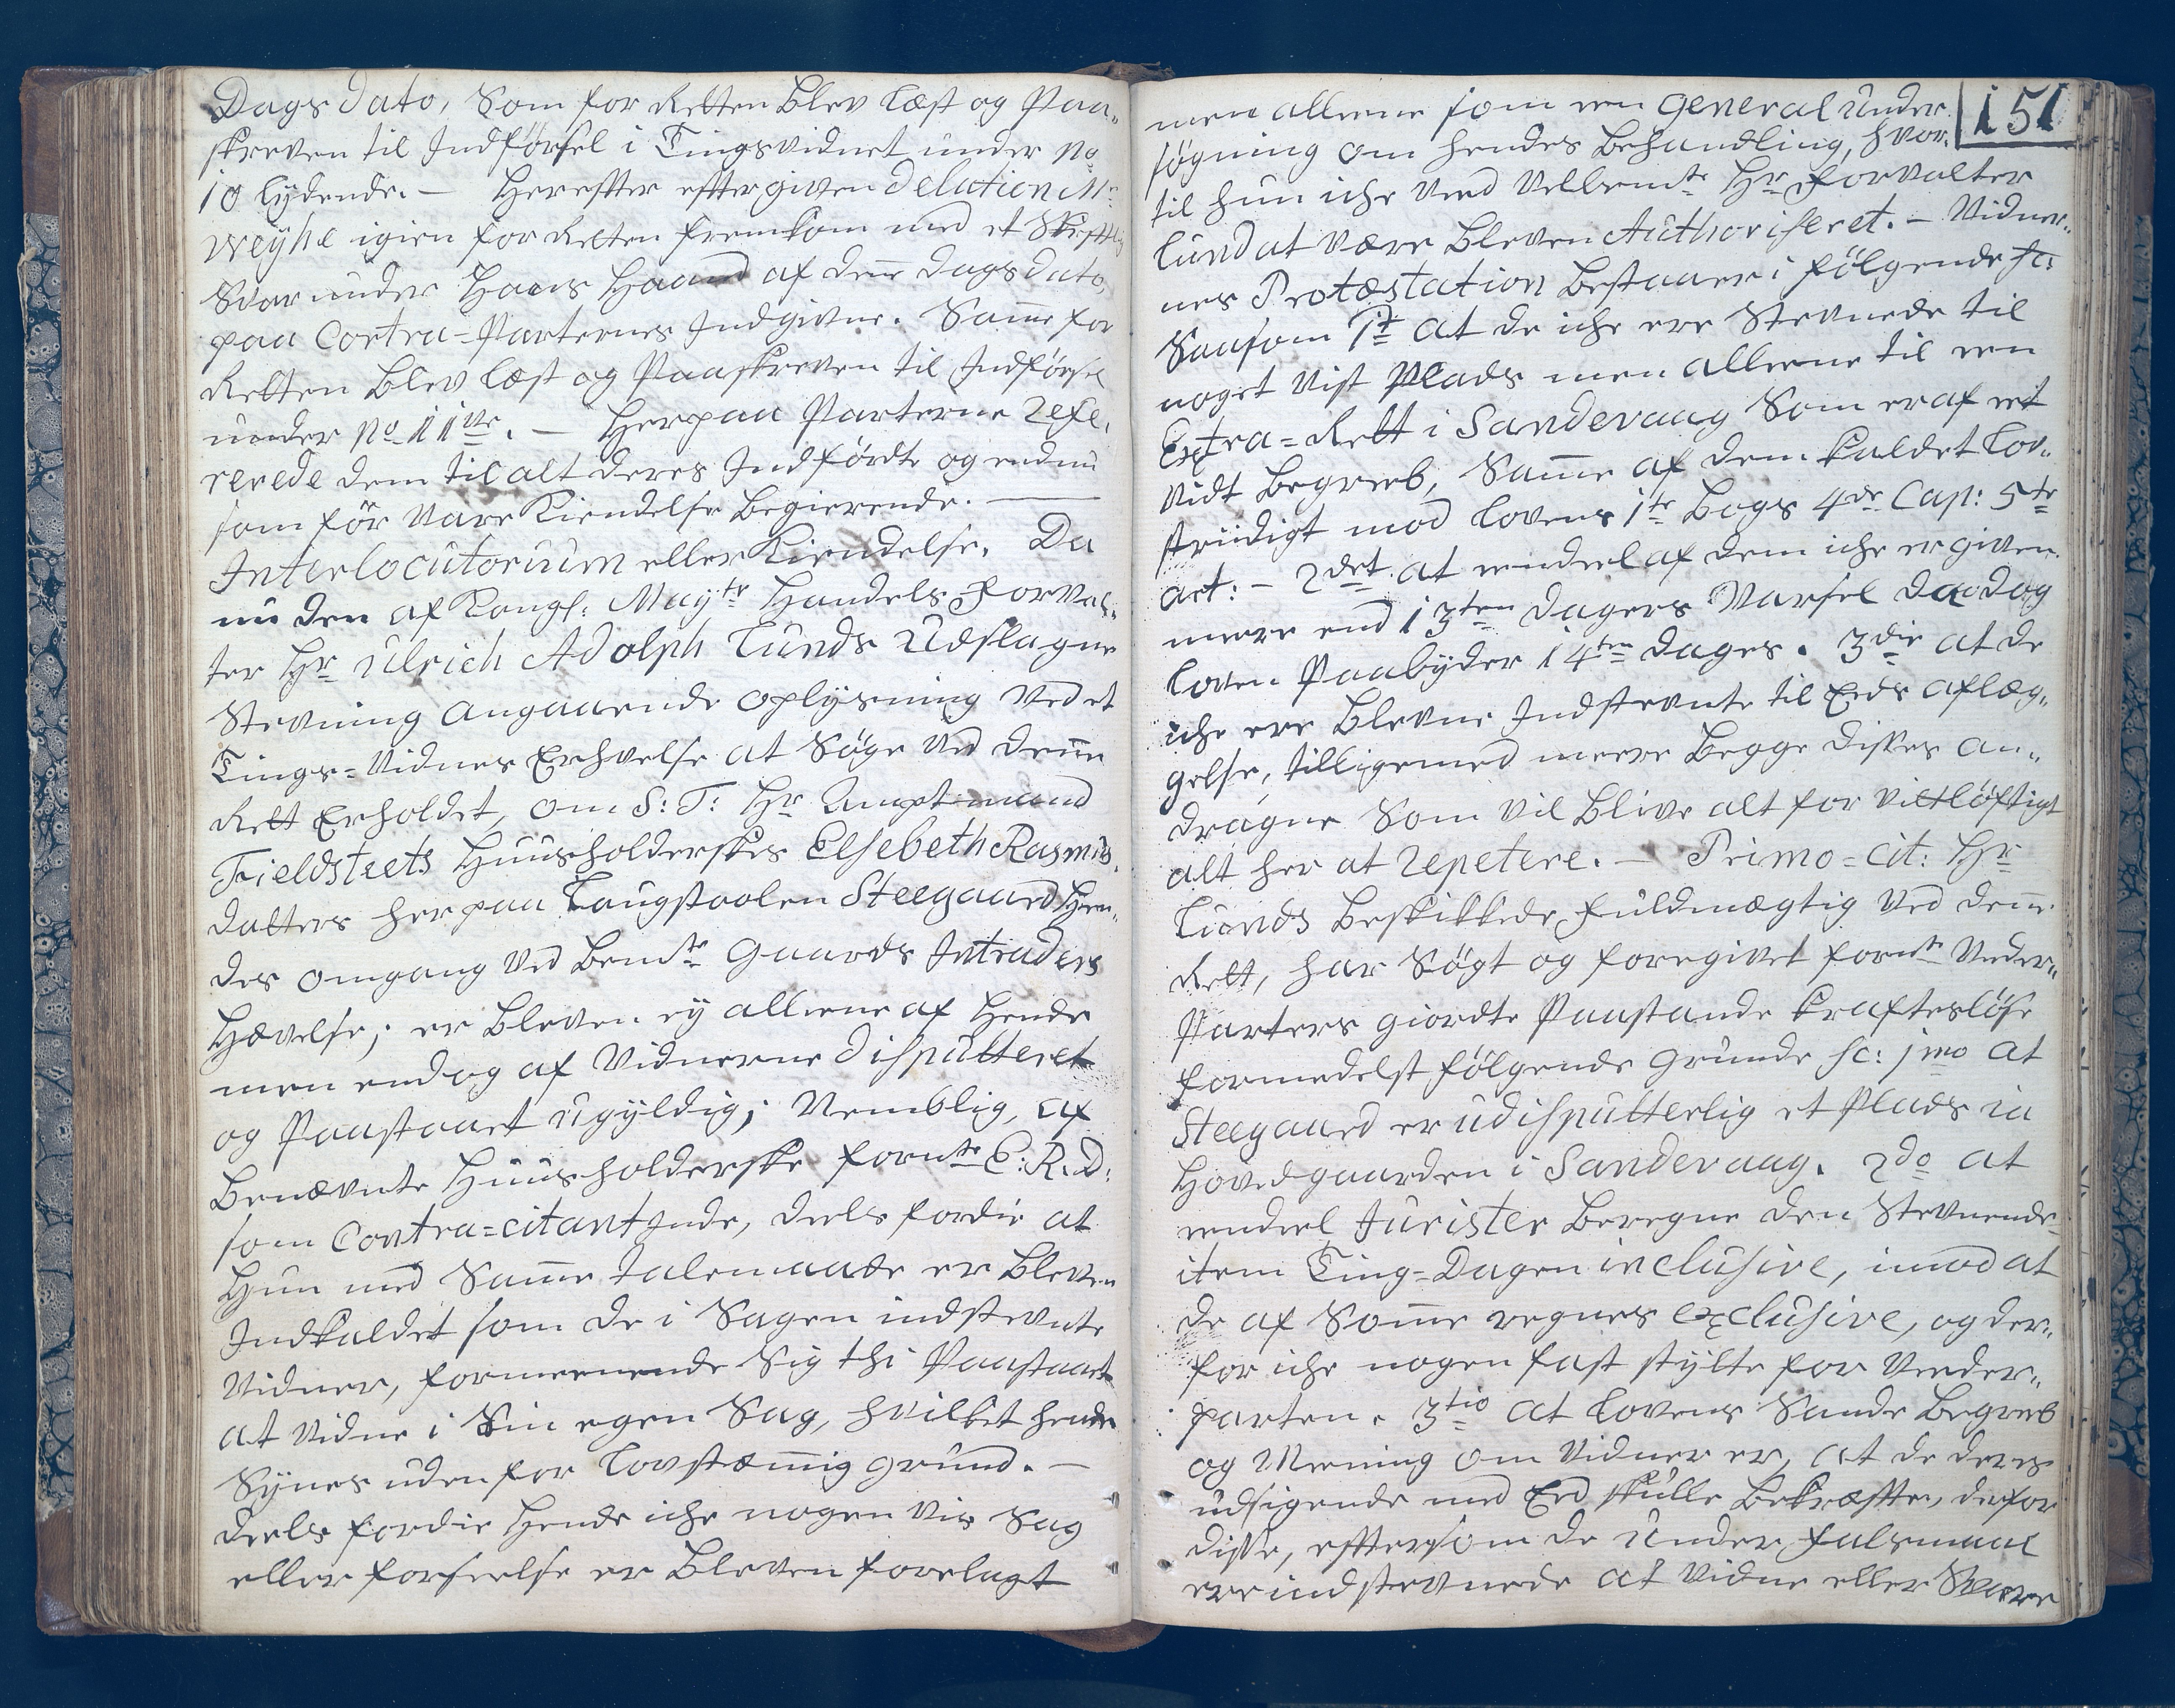 Dags dato, Som for Retten blev læst og Paa„
skreven til Indførsel i Tingsvidnet under No
10 lydende. — Herefter efter given Delation Mr.
Weyhe igien for Retten fremkom med et Skriftlig
Svar under Hans Haand af denne dags dato,
paa Contra-Parternes Indgivne. Samme for
Retten blev læst og Paaskreven til Indførsel
under No 11te. — Herpaa Parterne refe„
rerede dem til alt deres Indførdte og endnu
som før vare Kiendelse begierende. —
Interlocutorium eller Kiendelse. Da
nu den af Kongl: Mayts Handels Forval„
ter Hr Ulrich Adolph Lunds Udslagne
Stevning angaaende oplysning ved et
Tings-Vidnes Erhvelse at Søge ved denne
Rett Erholdet, om S: T: Hr Amptmand
Fieldsteets Huusholderskes Elsebeth Rasmus„
datters her paa Kaugstoelen Steegaard Hen„
des omgang ved bemte Gaards Intraders
Hævelse; er bleven ey alleene af Hende
men endog af Vidnerne disputteret
og Paastaaet ugyldig; Nemblig, af
benævnte Huusholderske fornte E: R: D:
som Contra=citantjnde, deels fordie at
Hun med Samme talemaade er bleven
Indkaldet som de i Sagen indstevnte
Vidner, formeenende Sig thi Paastaaet
at vidne i Sin egen Sag, hvilket hende
Synes uden for lovstæmmig grund. —
deels fordie Hende iche nogen vis Sag
eller forseelse er bleven forelagt
151
men alleene som een General under„
søgning om hendes behandling, hvor„
til hun iche veed Velbemte Hr Forvalter
Lund at være bleven Authoriseret. — Vidner„
nes Protæstation bestaaer i følgende sc:
Saasom 1t at de iche ere Stevnede til
noget vist Plads men alleene til een
Extra=Rett i Sandevaag Som er af eet
vidt begreeb, Samme af dem kaldet lov„
striidigt mod lovens 1te bogs 4de Cap: 5te
art: — 2det at eendeel af dem iche er given
meere end 13ten dagers Varsel da dog
loven Paabyder 14ten dages. 3die at de
iche ere blevne Indstevnte til Eeds aflæg„
gelse, tilligemed meere begge disses an„
dragne Som vil blive alt for vitløftigt
alt her at repetere. — Primo=cit: Hr
Lunds beskikkede fuldmægtig ved denne
Rett, har Søgt og foregivet fornte Veder„
Parters giordte Paastande kraftesløse
formedelst følgende grunde sc: jmo at
Steegaard er udisputterlig et Plads ia
Hovedgaarden i Sandevaag. 2do at
eendeel Jurister beregne den Stevnende
item Ting=Dagen inclusive, imod at
de af Somme regnes exclusive, og der„
for iche nogen fast stytte for veeder„
parten. 3tio at lovens Sande begreeb
og Meening om Vidner er, at de deres
udsigende med Eed skulle bekræfte, derfor
disse, eftersom de under Falsmaal
ere indstevnede at vidne eller Svare